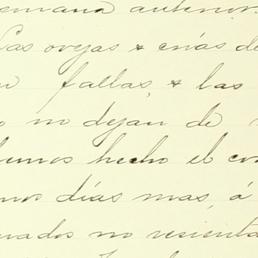 emana anterior.
Las ovejas & crías de
fallas, & las
no dejan de
hemos hecho el con
nos días mas, á
nados no resienta